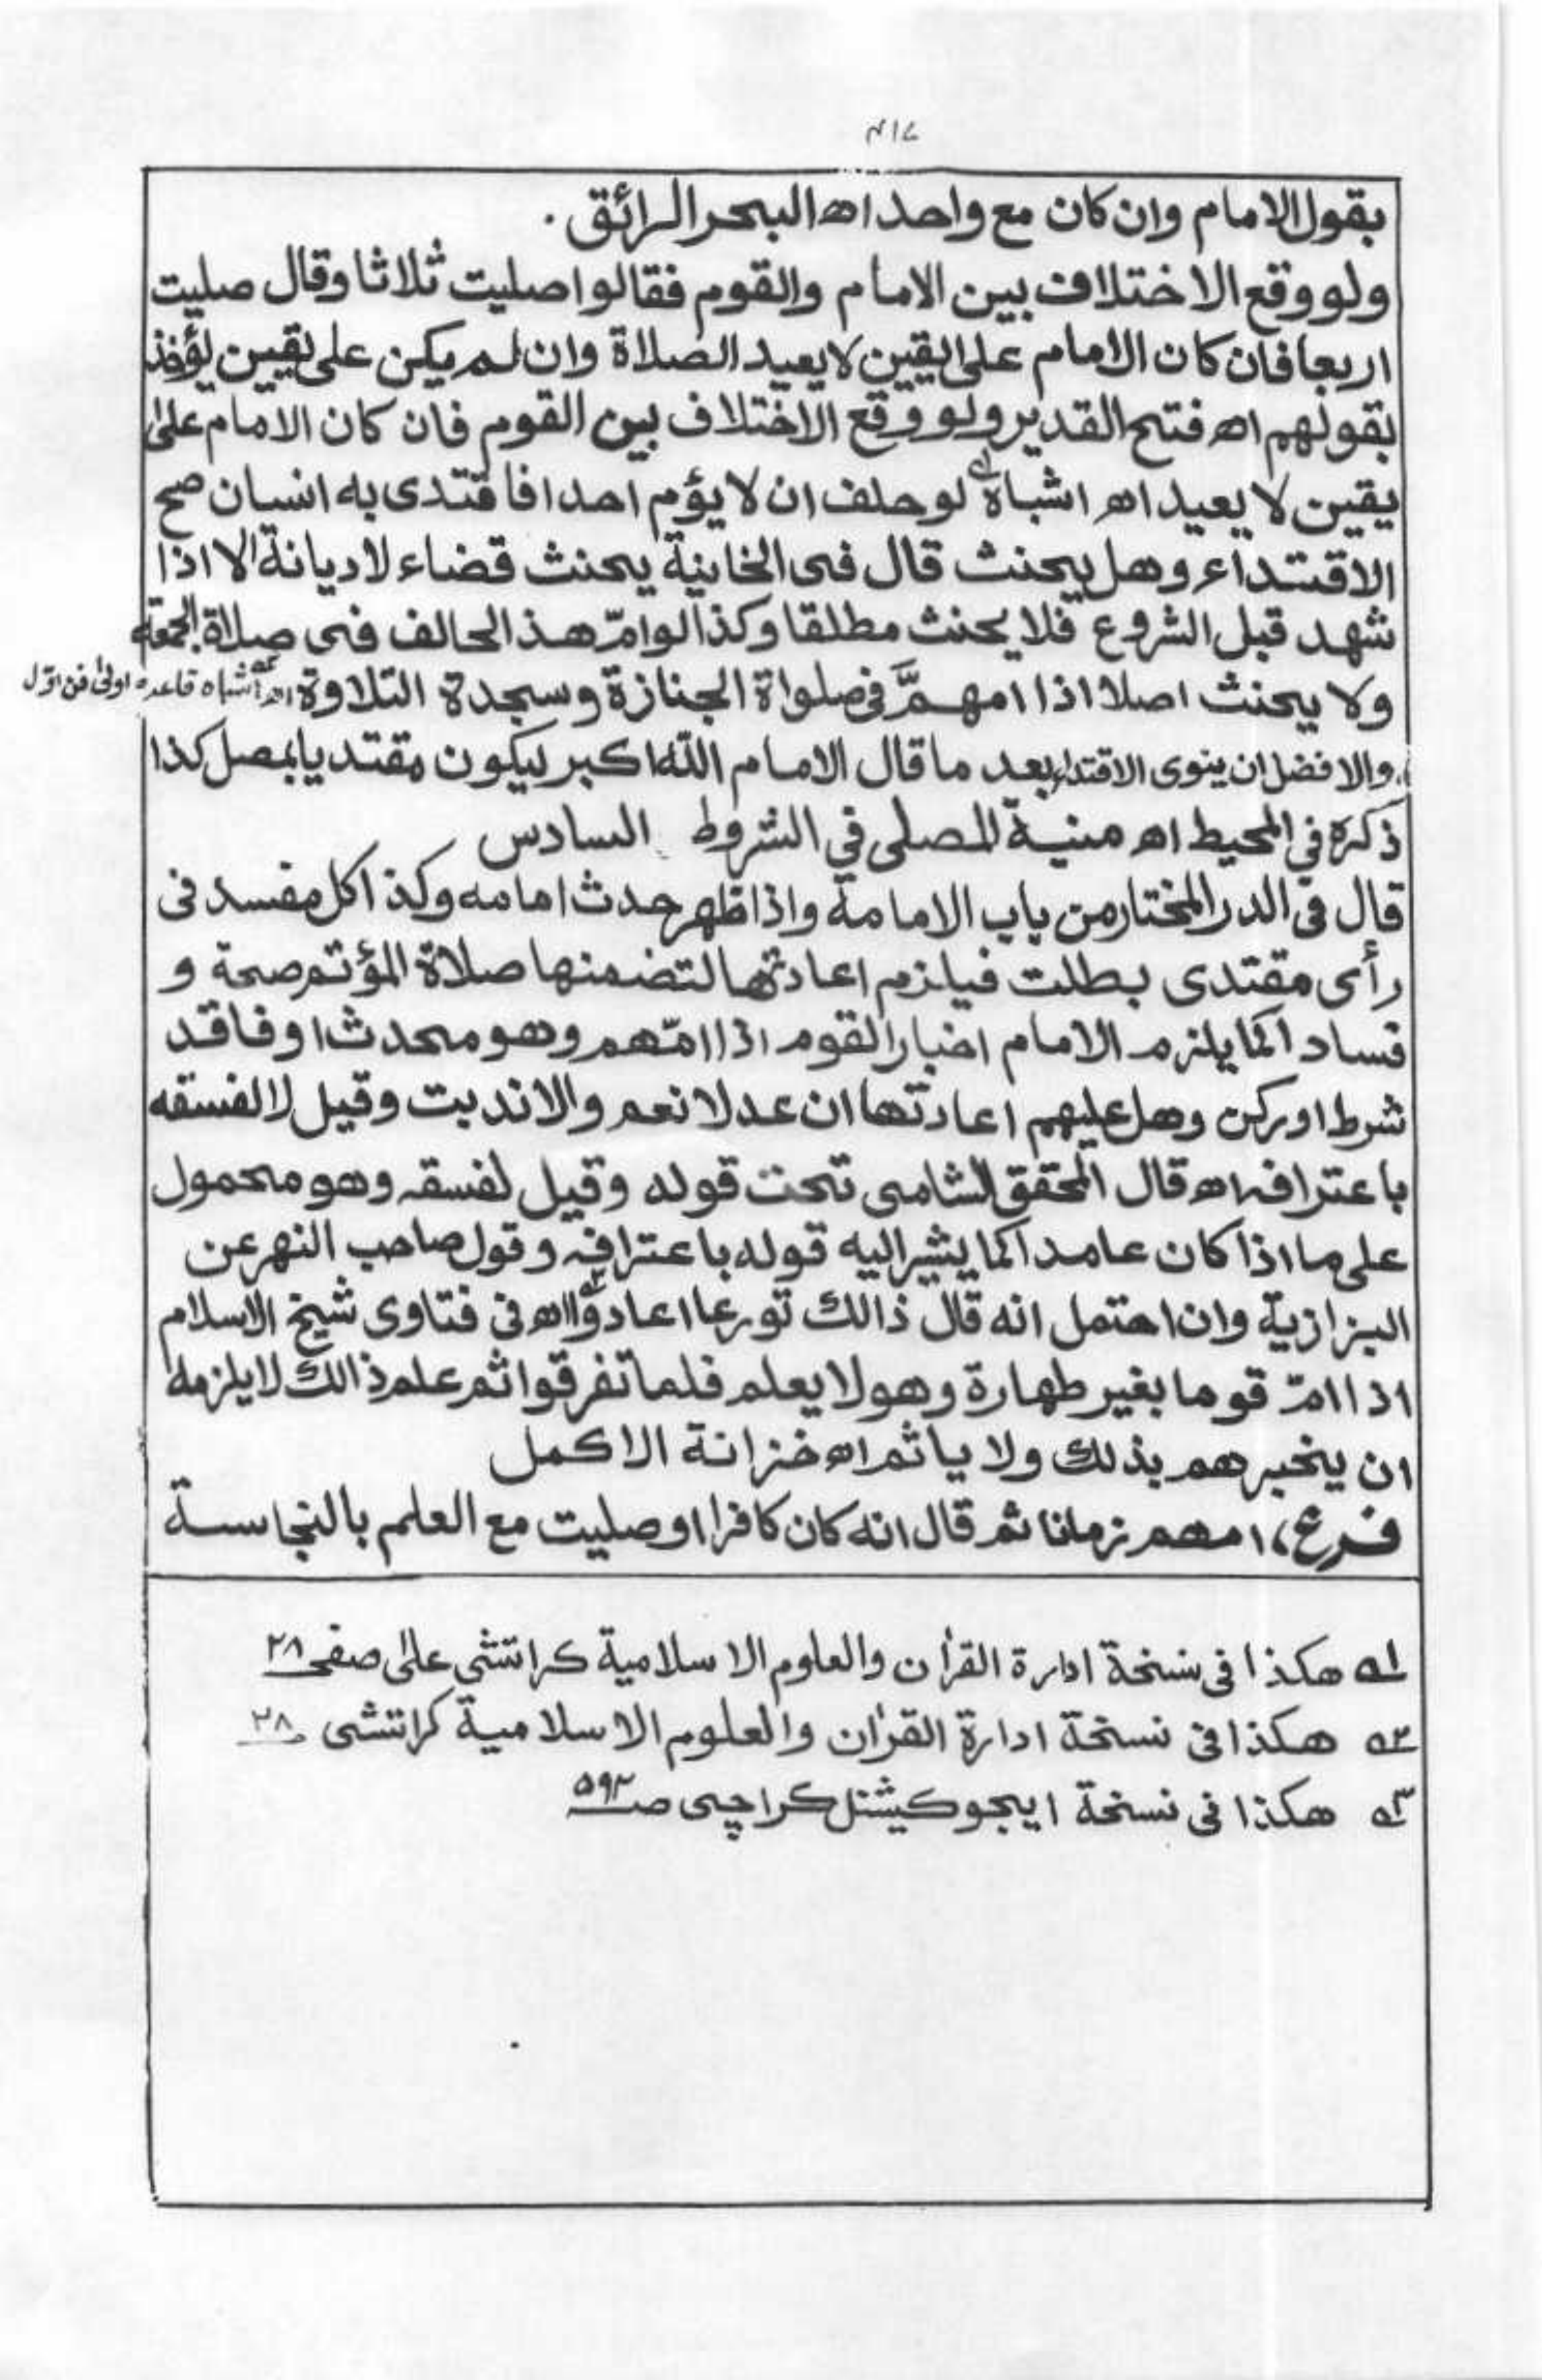 ۴۱۷
بقول الامام وان كان مع واحد اھ البحر الرائق .
ولو وقع الاختلاف بين الامام والقوم فقالوا صليت ثلاثا وقال صليت
اربعا فان كان الامام على اليقين لا يعيد الصلاة وان لم يكن على يقين يؤخذ
بقولهم اھ فتح القدير ولو وقع الاختلاف بين القوم فان كان الامام على
يقين لا يعيد اھ اشباه لو حلف ان لا يؤم احدا فاقتدى به انسان صح
الاقتداء وهل يحنث قال فى الخانية يحنث قضاء لا ديانة الا اذا
شهد قبل الشروع فلا يحنث مطلقا وكذا لو امّ هذ الحالف فى صلاة الجمعة
ولا يحنث اصلا اذا امهمّ فى صلواة الجنازة وسجدة التلاوة اھ اشباه قاعدہ اولیٰ فن اوّل
والافضل ان ينوى الاقتداء بعد ما قال الامام اللّٰه اكبر ليكون مقتديا بمصل كذا
ذكره في المحيط اھ منية المصلى في الشروط السادس
قال فى الدر المختار من باب الامامة واذا ظهر حدث امامه وكذا كل مفسد فى
رأى مقتدى بطلت فيلزم اعادتها لتضمنها صلاة المؤتم صحة و
فسادا كما يلزم الامام اخبار القوم اذا امّهم وهو محدث او فاقد
شرط او ركن وهل عليهم اعادتها ان عدلا نعم والا ندبت وقيل لا لفسقه
باعترافه اھ قال المحقق الشامى تحت قوله وقيل لفسقه وهو محمول
على ما اذا كان عامدا كما يشير اليه قوله باعترافه وقول صاحب النهر عن
البزازية وان احتمل انه قال ذالك تورعا اعادوا اھ فى فتاوى شيخ الاسلام
اذا امّ قوما بغير طهارة وهو لا يعلم فلما تفرقوا ثم علم ذالك لا يلزمه
ان يخبرهم بذلك ولا ياثم اھ خزانة الاكمل
فرع، امهم زمانا ثم قال انه كان كافرا او صليت مع العلم بالنجاسة
۱ھ هكذا فى نسخة ادارة القرٰان والعلوم الاسلامية كراتشى على صفحہ ۲۸
۲ھ هكذا فى نسخة ادارة القرٰان والعلوم الاسلامية كراتشى ۲۸
۳ھ هكذا فى نسخة ايجوكيشنل كراچى صـ ۵۹۲